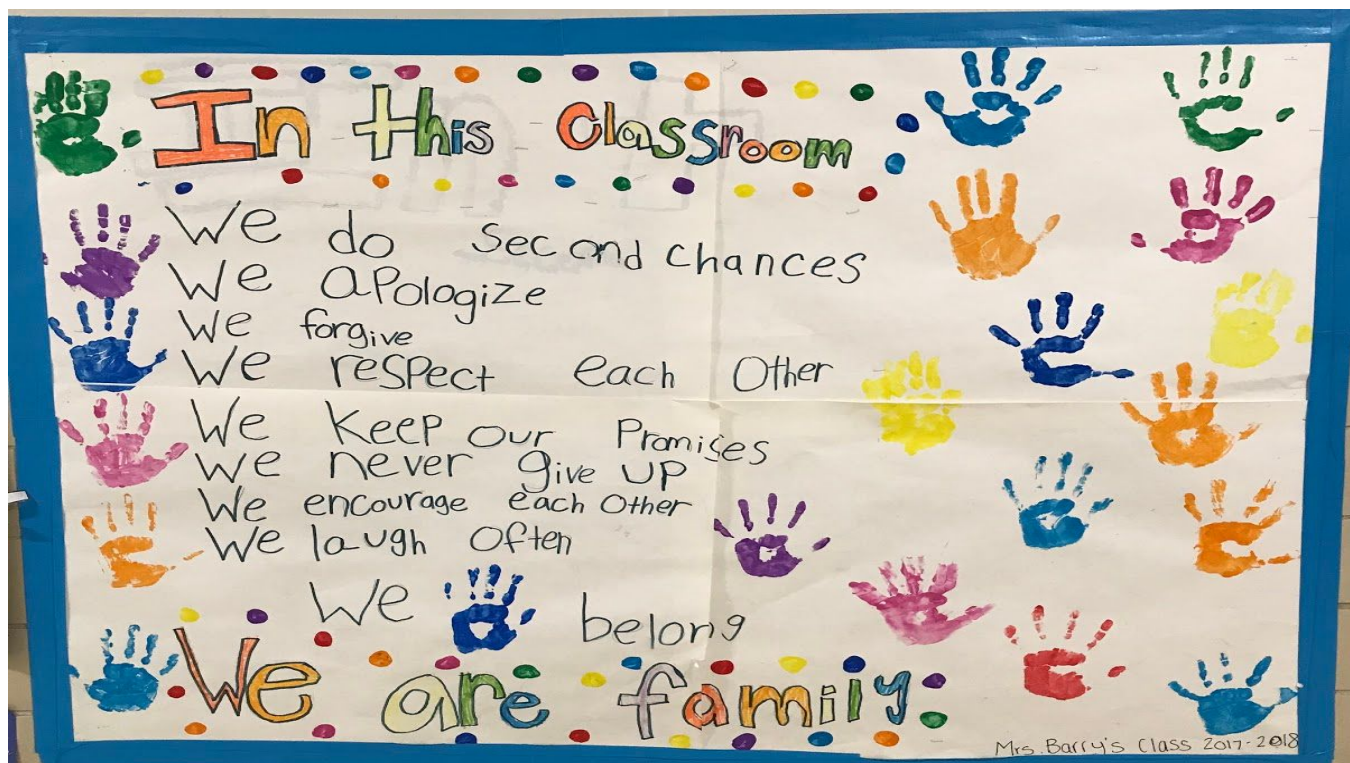 In this Classroom
We do second chances
We apologize
We forgive
We respect each Other
We Keep our Promises
We never give up
We encourage each Other
We laugh Often
We belong
We are family.
Mrs. Barry's Class 2017-2018